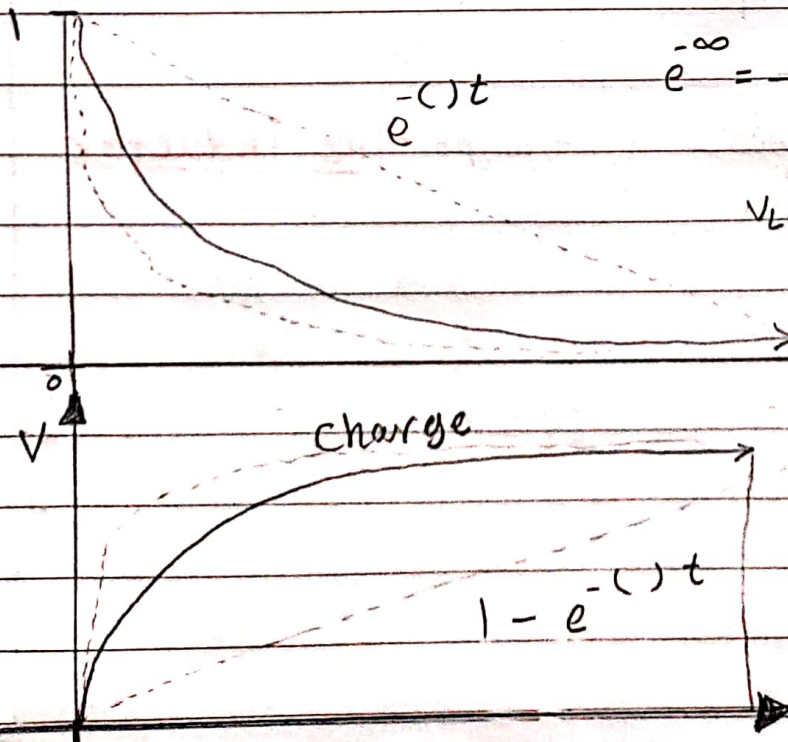 1
e^-∞ = -
e^-( ) t
V_L
0
V
charge
1 - e^-( ) t